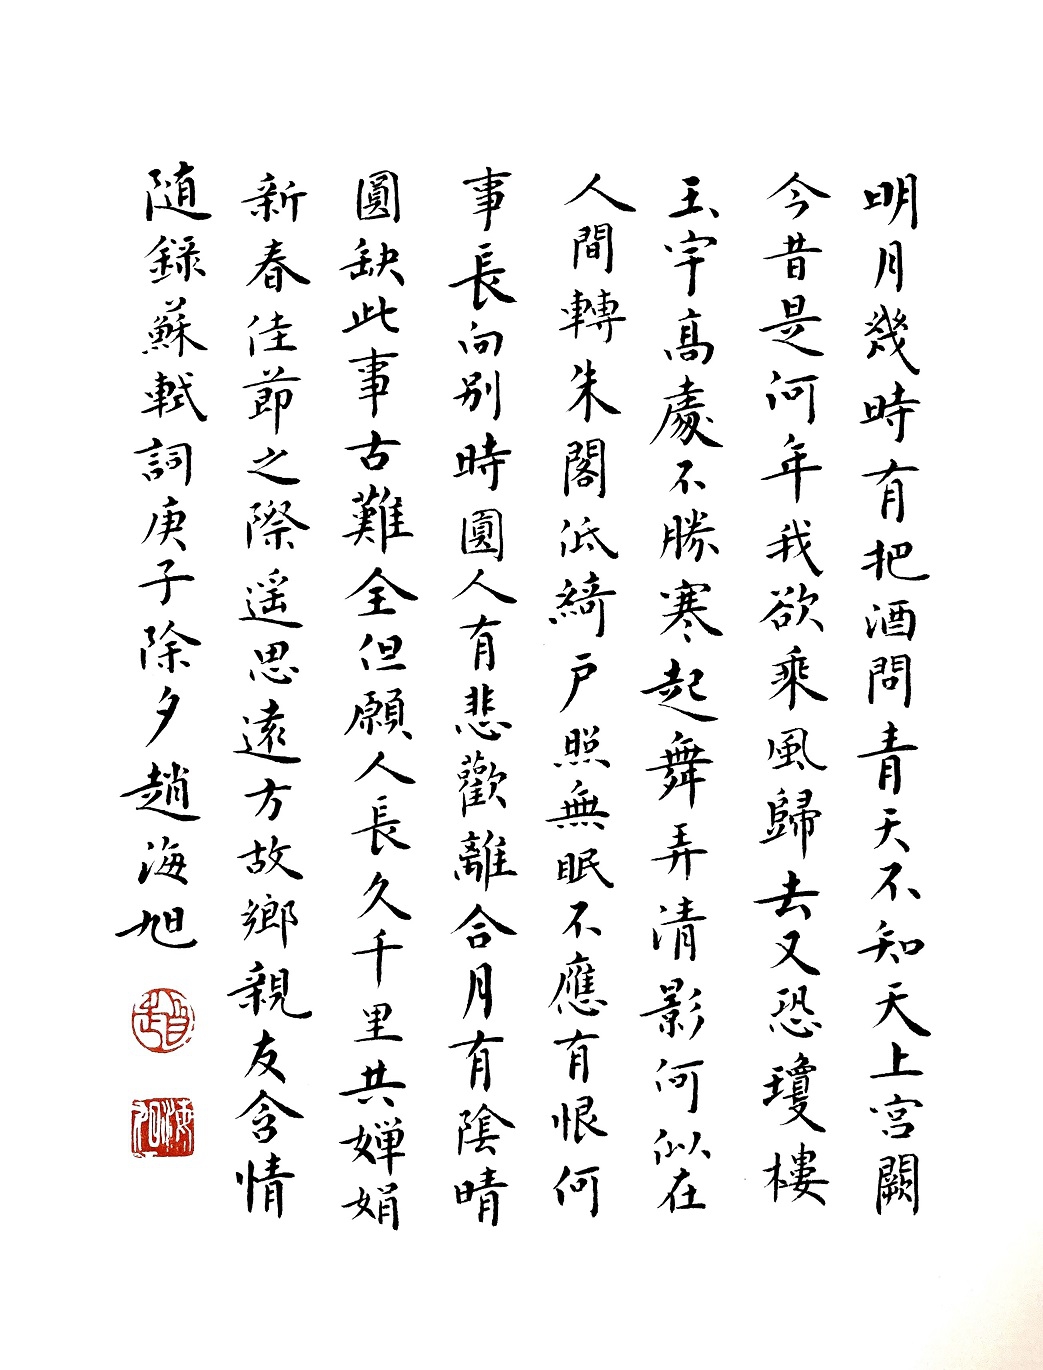 明月幾時有把酒問青天不知天上宮闕
今昔是何年我欲乘風歸去又恐瓊樓
玉宇高處不勝寒起舞弄清影何似在
人間轉朱閣低綺户照無眠不應有恨何
事長向别時圓人有悲歡離合月有陰晴
圓缺此事古難全但願人長久千里共嬋娟
新春佳節之際遥思遠方故鄉親友含情
随録蘇軾詞庚子除夕趙海旭
趙
海旭